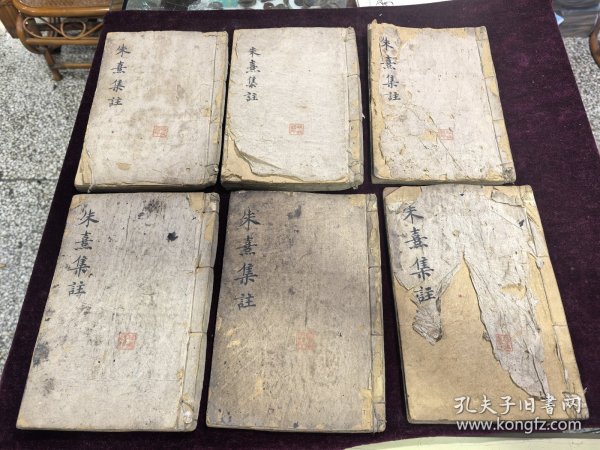 朱熹集註
朱熹集註
朱熹集註
朱熹集註
朱熹集註
朱熹集註
孔夫子旧书网